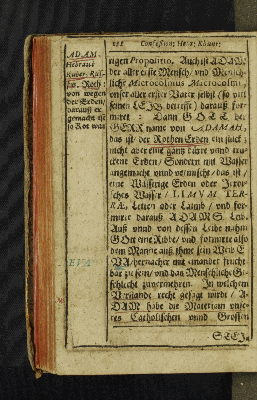 Confession; Henr; Khunr:
ADAM,
Hebraicè
Ruber, Rus-
fus, Roth:
von wegen
der Erden /
darauß er
gemacht ist
so Rot war
rigen Propositio. Auch ist ADAM
der aller erste Mensch / und
Microcosmus Microcosmi,
unser aller erster Vater selbst / so viel
seinen LEIB betrifft / darauß for-
miret: Dann GOTT der
HERR name von ADAMAH,
das ist / der Rothen Erden ein stück /
nicht aber eine gantz dürre und
Erden / Sondern mit Wasser
angemacht und vermischt / das ist /
eine Wässerige Erden oder Irrdi-
sches Wasser / LIMUM TER-
RÆ, Letten oder Laimb / und for-
mirte darauß ADAMS Leib.
Auß unnd von dessen Leibe nahm
GOtt eine Ribbe / und formiret also
dem Manne auß ihme sein Weib E-
VA / hernacher mit einander frucht-
bar zu sein / und das Menschliche Ge-
schlecht zuvermehren. In welchem
Verstande recht gesagt wirdt / A-
DAM habe die Materiam unse-
res Catholischen unnd Grossen
EVA
STEI-